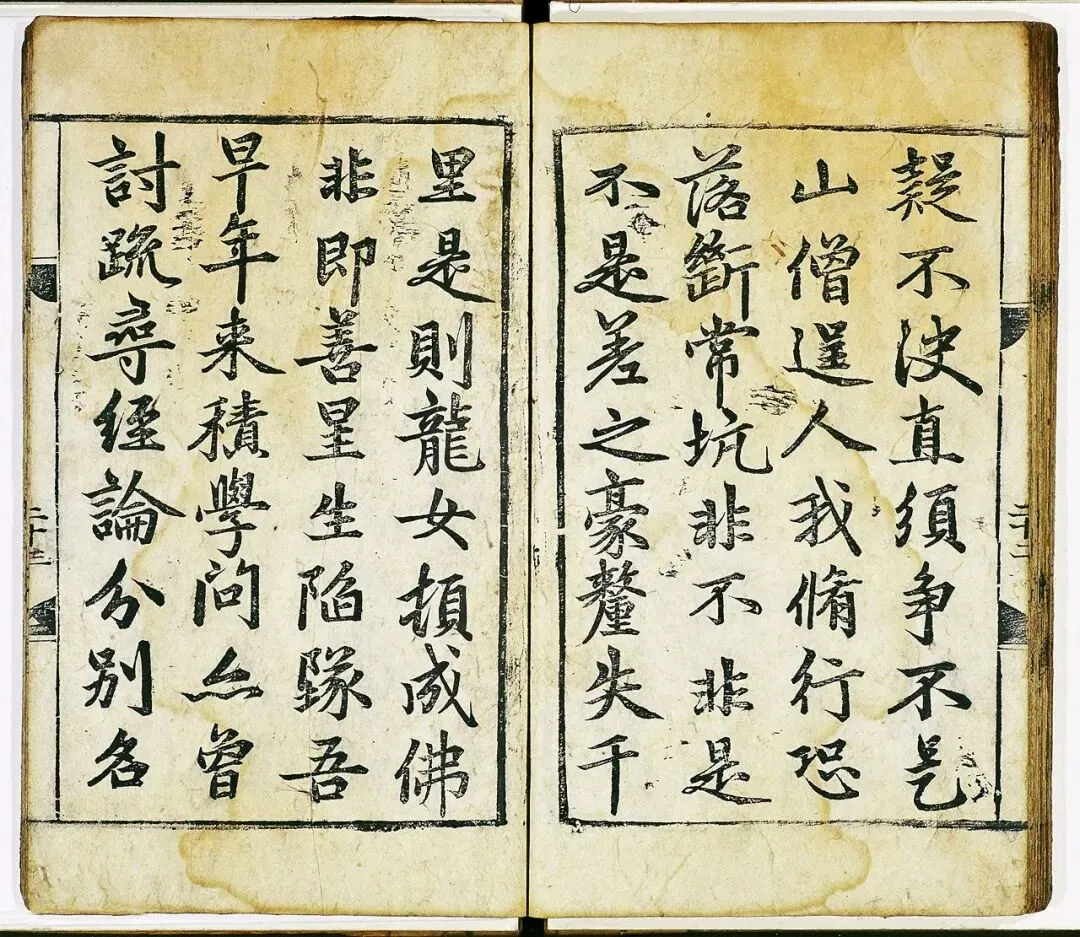 疑不決直須争不是
山僧逞人我脩行恐
落斷常坑非不非是
不是差之豪釐失千
里是則龍女頓成佛
非即善星生陷隊吾
早年来積學問亦曾
討䟽尋經論分別名